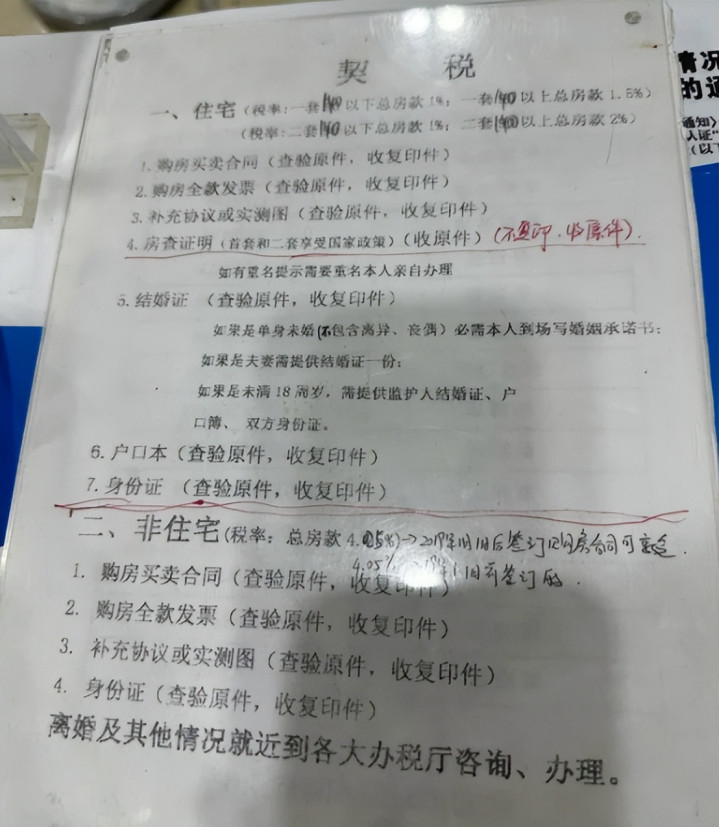 契 税
一、住宅(税率:一套140以下总房款1%;一套140以上总房款1.5%)
(税率:二套140以下总房款1%;二套140以上总房款2%)
1.购房买卖合同(查验原件,收复印件)
2.购房全款发票(查验原件,收复印件)
3.补充协议或实测图(查验原件,收复印件)
4.房查证明(首套和二套享受国家政策)(收原件)(不复印.收原件).
如有重名提示需要重名本人亲自办理
5.结婚证 (查验原件,收复印件)
如果是单身未婚(不包含离异、丧偶)必需本人到场写婚姻承诺书;
如果是夫妻需提供结婚证一份;
如果是未满18周岁,需提供监护人结婚证、户
口簿、双方身份证。
6.户口本(查验原件,收复印件)
7.身份证 (查验原件,收复印件)
二、非住宅(税率:总房款4.05%)→2019年 签订 购房合同可
4.05% 签订的.
1. 购房买卖合同(查验原件,收复印件)
2. 购房全款发票(查验原件,收复印件)
3. 补充协议或实测图(查验原件,收复印件)
4. 身份证(查验原件,收复印件)
离婚及其他情况就近到各大办税厅咨询、办理。
情况
的通
通知》
人证"
(以